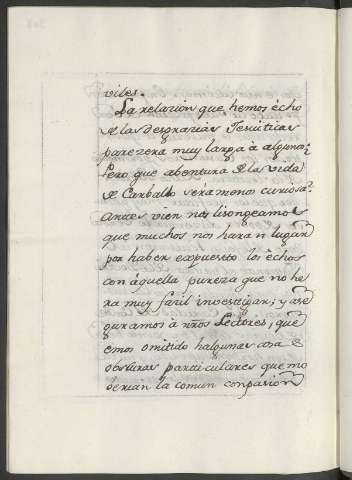 viles.
La relazion que hemos écho
de las desgrazias Jesuiticas
parezera muy larga à algunos,
Pero que abentura de la vida
de Carballo sera menos curiosa?
Antes vien nos lisongeamos
que muchos nos haran lugar
por haber expuesto los échos
con aquella pureza que no he
ra muy fazil investigar; y ase
guramos à nr̃os Lectores, que
emos omitido halgunas cosas
obscuras particulares que mo
berian la comun conpasion